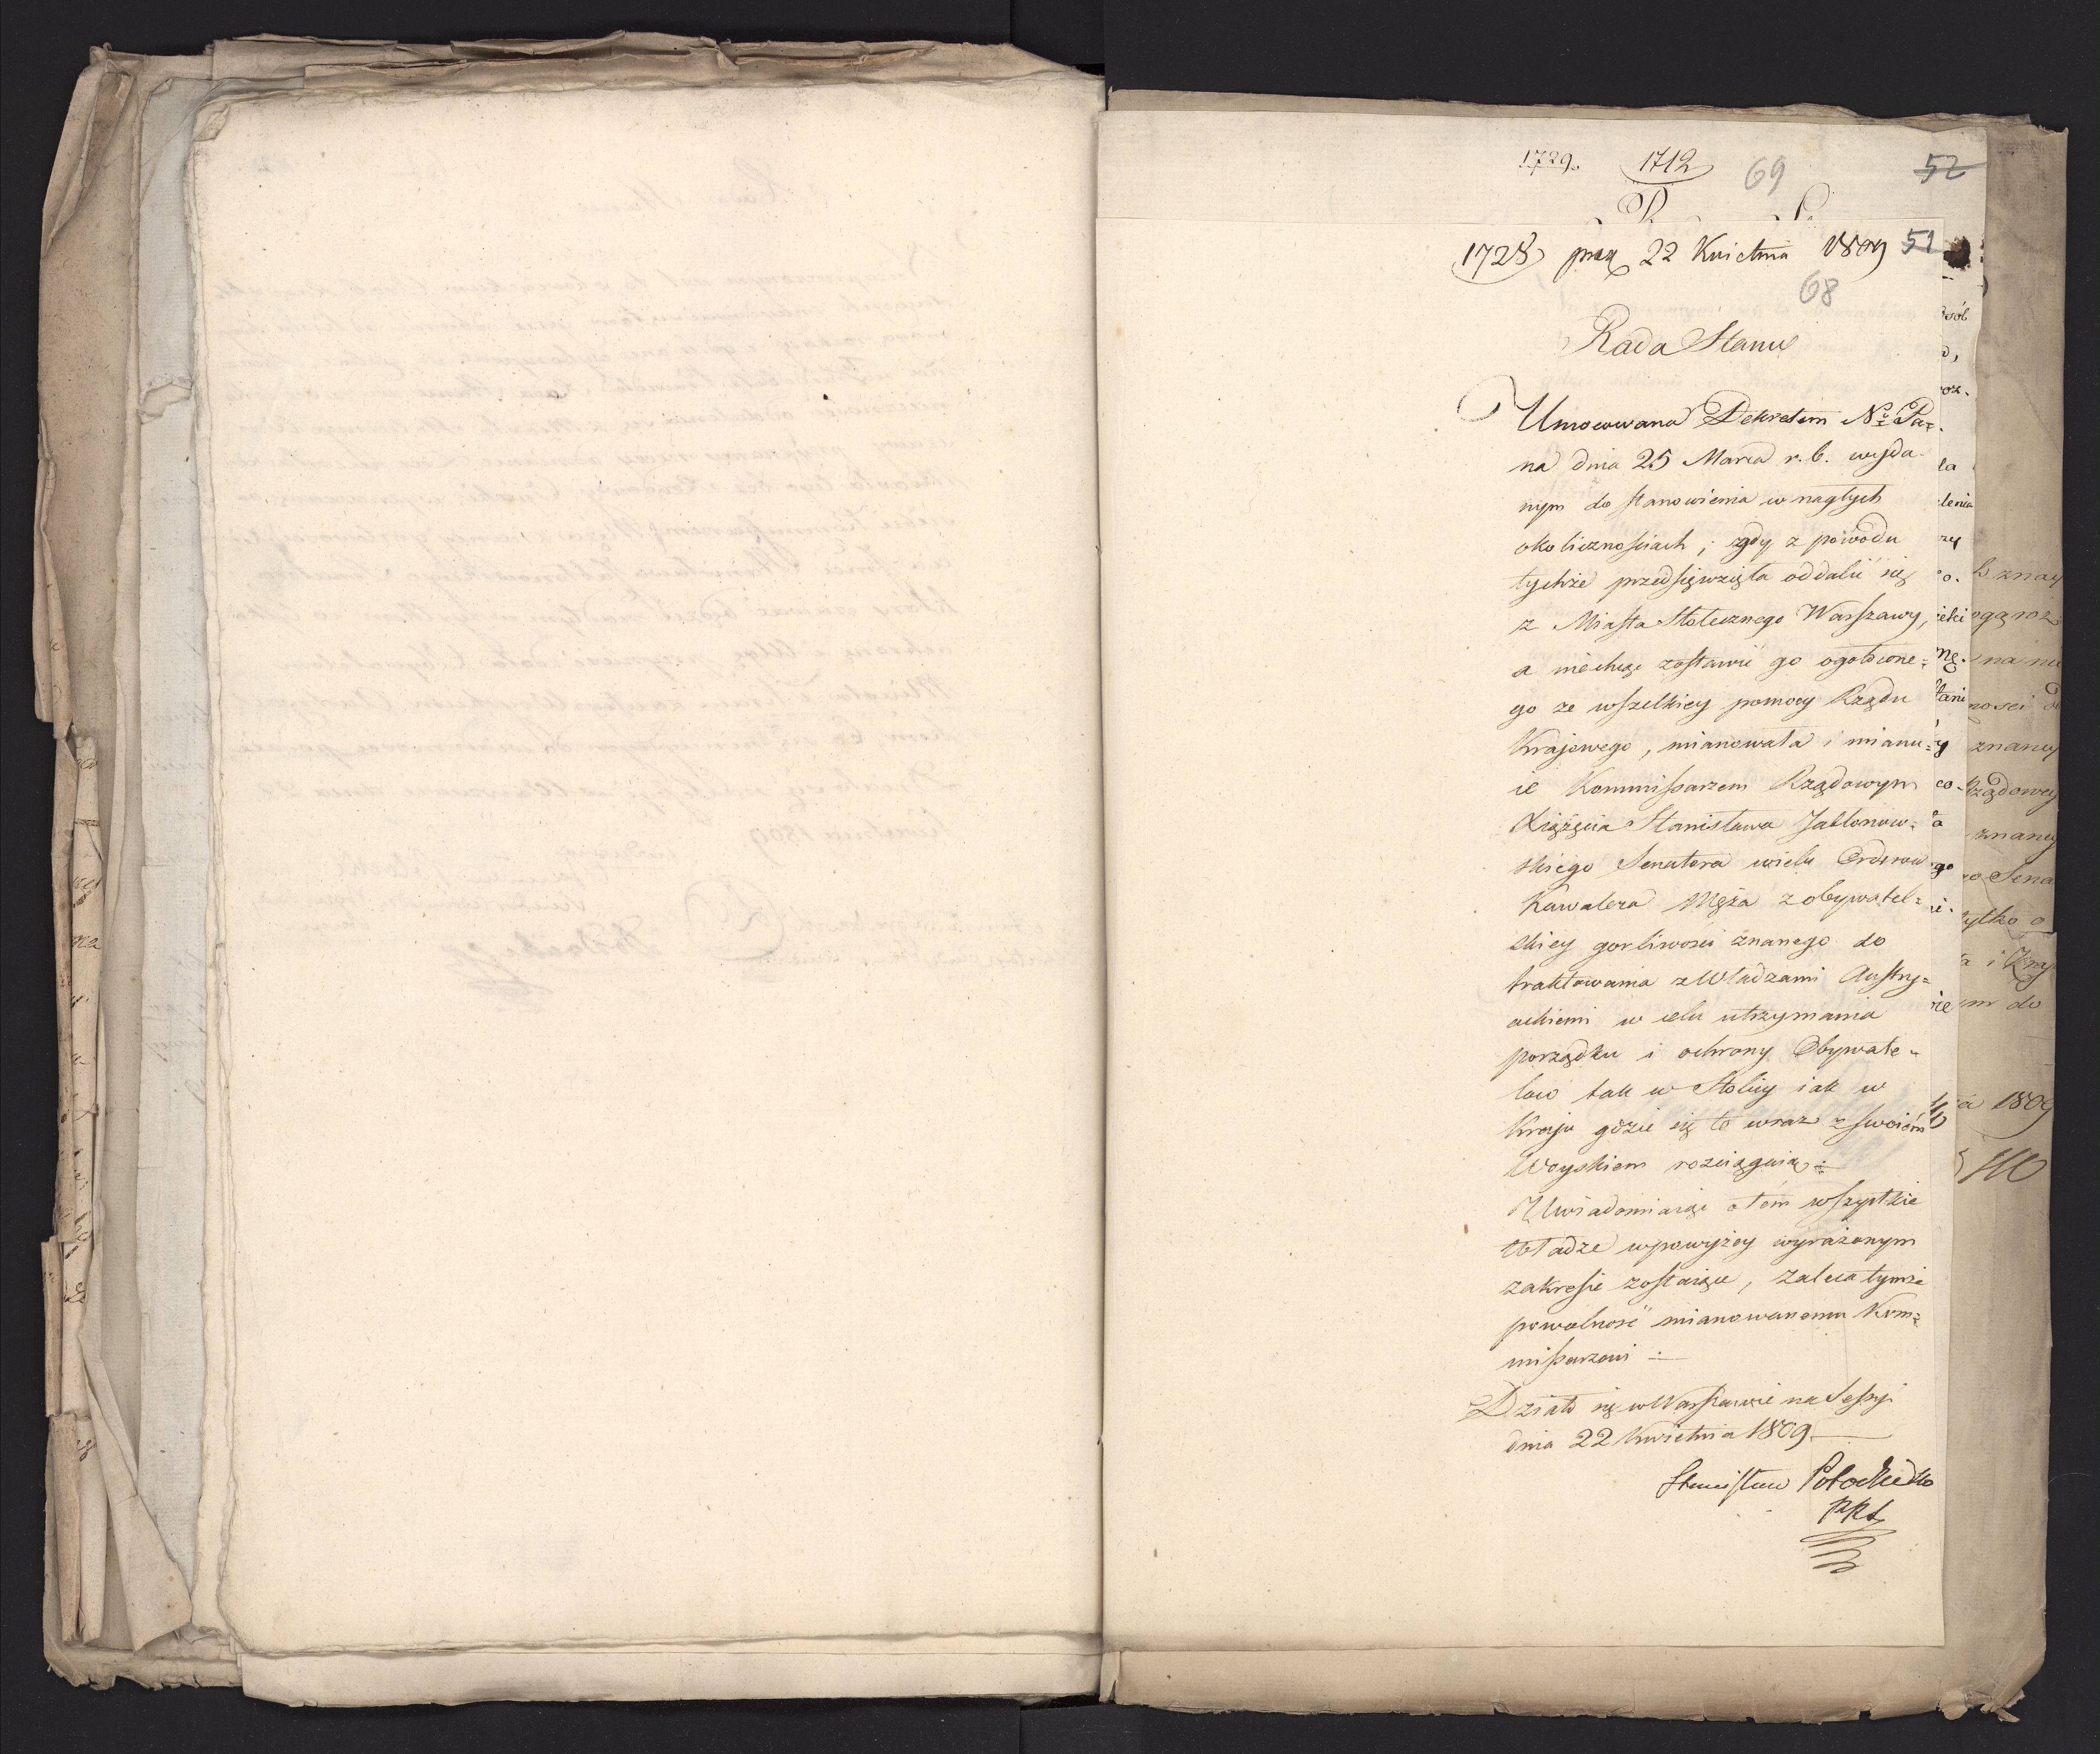 1729. 1712 69 52
1728 prez 22 Kwietnia 1809 51
68
Rada Stanu
Umocowana Dekretem No Pa=
na dnia 25 Marca r. b. wyda-
nym do stanowienia w nagłych
okolicznościach; gdy z powodu
tychże przedsięwzięła oddalić się
z Miasta Stołecznego Warszawy,
a niechcąc zostawić go ogołocone=
go ze wszelkiey pomocy Rządu
Krajowego, mianowała i mianu=
ie Kommissarzem Rządowym
Xiążęcia Stanisława Jabłonow=
skiego Senatora wielu Orderów
Kawalera Męża z obywatel=
skiey gorliwości znanego do
traktowania z Władzami Austry=
ackiemi w celu utrzymania
porządku i ochrony Obywate=
low tak w Stolicy iak w
Kraju gdzie się te wraz z swoiém
Woyskiem rozciągnią÷
Uwiadomiaiąc o tém wszystkie
Władze w powyżey wyrażonym
zakresie zostaiące, zaleca tymże
powolność mianowanemu Kom=
missarzowi ÷
Działo się w Warszawie na Sessyi
dnia 22 Kwietnia 1809
Stanisław Potocki